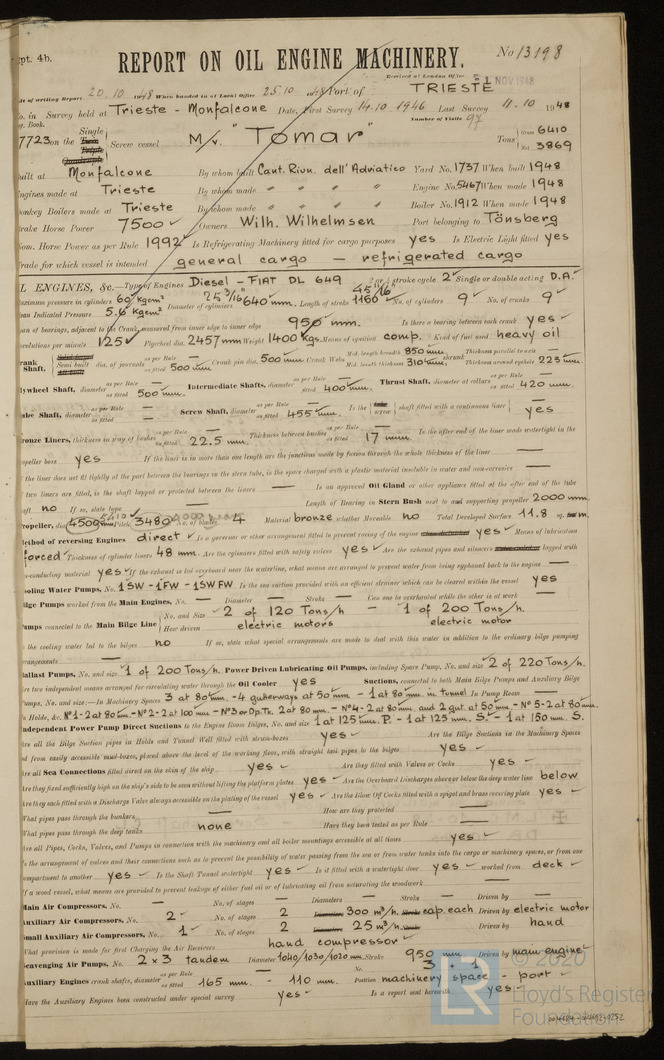 pt. 4b.
REPORT ON OIL ENGINE MACHINERY. No 13198
Received at London Office NOV 1948
of writing Report 20.10 1948 When handed in at Local Office 25.10 1948 Port of TRIESTE
No. in Survey held at Trieste - Monfalcone Date, First Survey 14.10.1946 Last Survey 11.10 1948
Book. Number of Visits 97
7723 on the Single Screw vessel M/v. "Tomar" Tons Gross 6410 Net 3869
Built at Monfalcone By whom built Cant. Riun. dell' Adriatico Yard No. 1737 When built 1948
Engines made at Trieste By whom made " " " Engine No. 5467 When made 1948
Donkey Boilers made at Trieste By whom made " " " Boiler No. 1912 When made 1948
Brake Horse Power 7500 Owners Wilh. Wilhelmsen Port belonging to Tönsberg
Nom. Horse Power as per Rule 1992 Is Refrigerating Machinery fitted for cargo purposes yes Is Electric Light fitted yes
Trade for which vessel is intended general cargo — refrigerated cargo
OIL ENGINES, &c.—Type of Engines Diesel - FIAT DL 649 2 or 4 stroke cycle 2 Single or double acting D.A.
Maximum pressure in cylinders 60 kgcm² Diameter of cylinders 25 3/16" 640 mm. Length of stroke 45 1160 No. of cylinders 9 No. of cranks 9
Mean Indicated Pressure 5.6 kgcm²
Span of bearings, adjacent to the Crank, measured from inner edge to inner edge 950 mm. Is there a bearing between each crank yes
Revolutions per minute 125 Flywheel dia. 2457 mm Weight 1400 kgs. Means of ignition comp. Kind of fuel used heavy oil
Crank Shaft, Semi built dia. of journals as per Rule — as fitted 500 mm. Crank pin dia. 500 mm. Crank Webs Mid. length breadth 850 mm. Mid. length thickness 310 mm. shrunk Thickness parallel to axis — Thickness around eyehole 223 mm.
Flywheel Shafts, diameter as per Rule — as fitted 500 mm. Intermediate Shafts, diameter as per Rule — as fitted 400 mm. Thrust Shaft, diameter at collars as per Rule — as fitted 420 mm.
Tube Shaft, diameter as per Rule — as fitted — Screw Shaft, diameter as per Rule — as fitted 455 mm. Is the screw shaft fitted with a continuous liner yes
Bronze Liners, thickness in way of bushes as per Rule — as fitted 22.5 mm. Thickness between bushes as per Rule — as fitted 17 mm. Is the after end of the liner made watertight in the
propeller boss yes If the liner is in more than one length are the junctions made by fusion through the whole thickness of the liner —
If the liner does not fit tightly at the part between the bearings in the stern tube, is the space charged with a plastic material insoluble in water and non-corrosive —
If two liners are fitted, is the shaft lapped or protected between the liners — Is an approved Oil Gland or other appliance fitted at the after end of the tube
shaft no If so, state type — Length of Bearing in Stern Bush next to and supporting propeller 2000 mm.
Propeller, dia. 4500 mm Pitch 3480 No. of blades 4 Material bronze whether Moveable no Total Developed Surface 11.8 sq. m.
Method of reversing Engines direct Is a governor or other arrangement fitted to prevent racing of the engine yes Means of lubrication
forced Thickness of cylinder liners 48 mm. Are the cylinders fitted with safety valves yes Are the exhaust pipes and silencers lagged with
non-conducting material yes If the exhaust is led overboard near the waterline, what means are arranged to prevent water from being syphoned back to the engine —
Cooling Water Pumps, No. 1 SW - 1 FW - 1 SW FW Is the sea suction provided with an efficient strainer which can be cleared within the vessel yes
Bilge Pumps worked from the Main Engines, No. — Diameter — Stroke — Can one be overhauled while the other is at work —
Pumps connected to the Main Bilge Line No. and Size 2 of 120 Tons/h — 1 of 200 Tons/h.
How driven electric motors electric motor
Is the cooling water led to the bilges no If so, state what special arrangements are made to deal with this water in addition to the ordinary bilge pumping
arrangements —
Ballast Pumps, No. and size 1 of 200 Tons/h. Power Driven Lubricating Oil Pumps, including Spare Pump, No. and size 2 of 220 Tons/h.
Are two independent means arranged for circulating water through the Oil Cooler yes Suctions, connected to both Main Bilge Pumps and Auxiliary Bilge
Pumps, No. and size:—In Machinery Spaces 3 at 80 mm. - 4 gutterways at 50 mm - 1 at 80 mm. in tunnel In Pump Room —
In Holds, &c. N°1-2 at 80 mm - N°2-2 at 100 mm - N°3 or Dp.Tk. 2 at 80 mm. - N°4-2 at 80 mm. and 2 gut. at 50 mm - N°5-2 at 80 mm.
Independent Power Pump Direct Suctions to the Engine Room Bilges, No. and size 1 at 125 mm. P. - 1 at 125 mm. S. - 1 at 150 mm. S.
Are all the Bilge Suction pipes in Holds and Tunnel Well fitted with strum-boxes yes Are the Bilge Suctions in the Machinery Spaces
led from easily accessible mud-boxes, placed above the level of the working floor, with straight tail pipes to the bilges yes
Are all Sea Connections fitted direct on the skin of the ship yes Are they fitted with Valves or Cocks yes
Are they fixed sufficiently high on the ship's side to be seen without lifting the platform plates yes Are the Overboard Discharges above or below the deep water line below
Are they each fitted with a Discharge Valve always accessible on the plating of the vessel yes Are the Blow Off Cocks fitted with a spigot and brass covering plate yes
What pipes pass through the bunkers — How are they protected —
What pipes pass through the deep tanks none Have they been tested as per Rule —
Are all Pipes, Cocks, Valves, and Pumps in connection with the machinery and all boiler mountings accessible at all times yes
Is the arrangement of valves and their connections such as to prevent the possibility of water passing from the sea or from water tanks into the cargo or machinery spaces, or from one
compartment to another yes Is the Shaft Tunnel watertight yes Is it fitted with a watertight door yes worked from deck
If a wood vessel, what means are provided to prevent leakage of either fuel oil or of lubricating oil from saturating the woodwork —
Main Air Compressors, No. — No. of stages — Diameters — Stroke — Driven by —
Auxiliary Air Compressors, No. 2 No. of stages 2 300 m³/h. cap. each Driven by electric motor
Small Auxiliary Air Compressors, No. 1 No. of stages 2 25 m³/h. Driven by hand
What provision is made for first Charging the Air Receivers hand compressor
Scavenging Air Pumps, No. 2 x 3 tandem Diameter 1040/1030/1020 mm. Stroke 950 mm Driven by main engine
Auxiliary Engines crank shafts, diameter as per Rule — as fitted 165 mm. - 110 mm. No. 3 + 1 Position machinery space - port
Have the Auxiliary Engines been constructed under special survey yes Is a report sent herewith yes
© 2020
LR
Lloyd's Register
Foundation